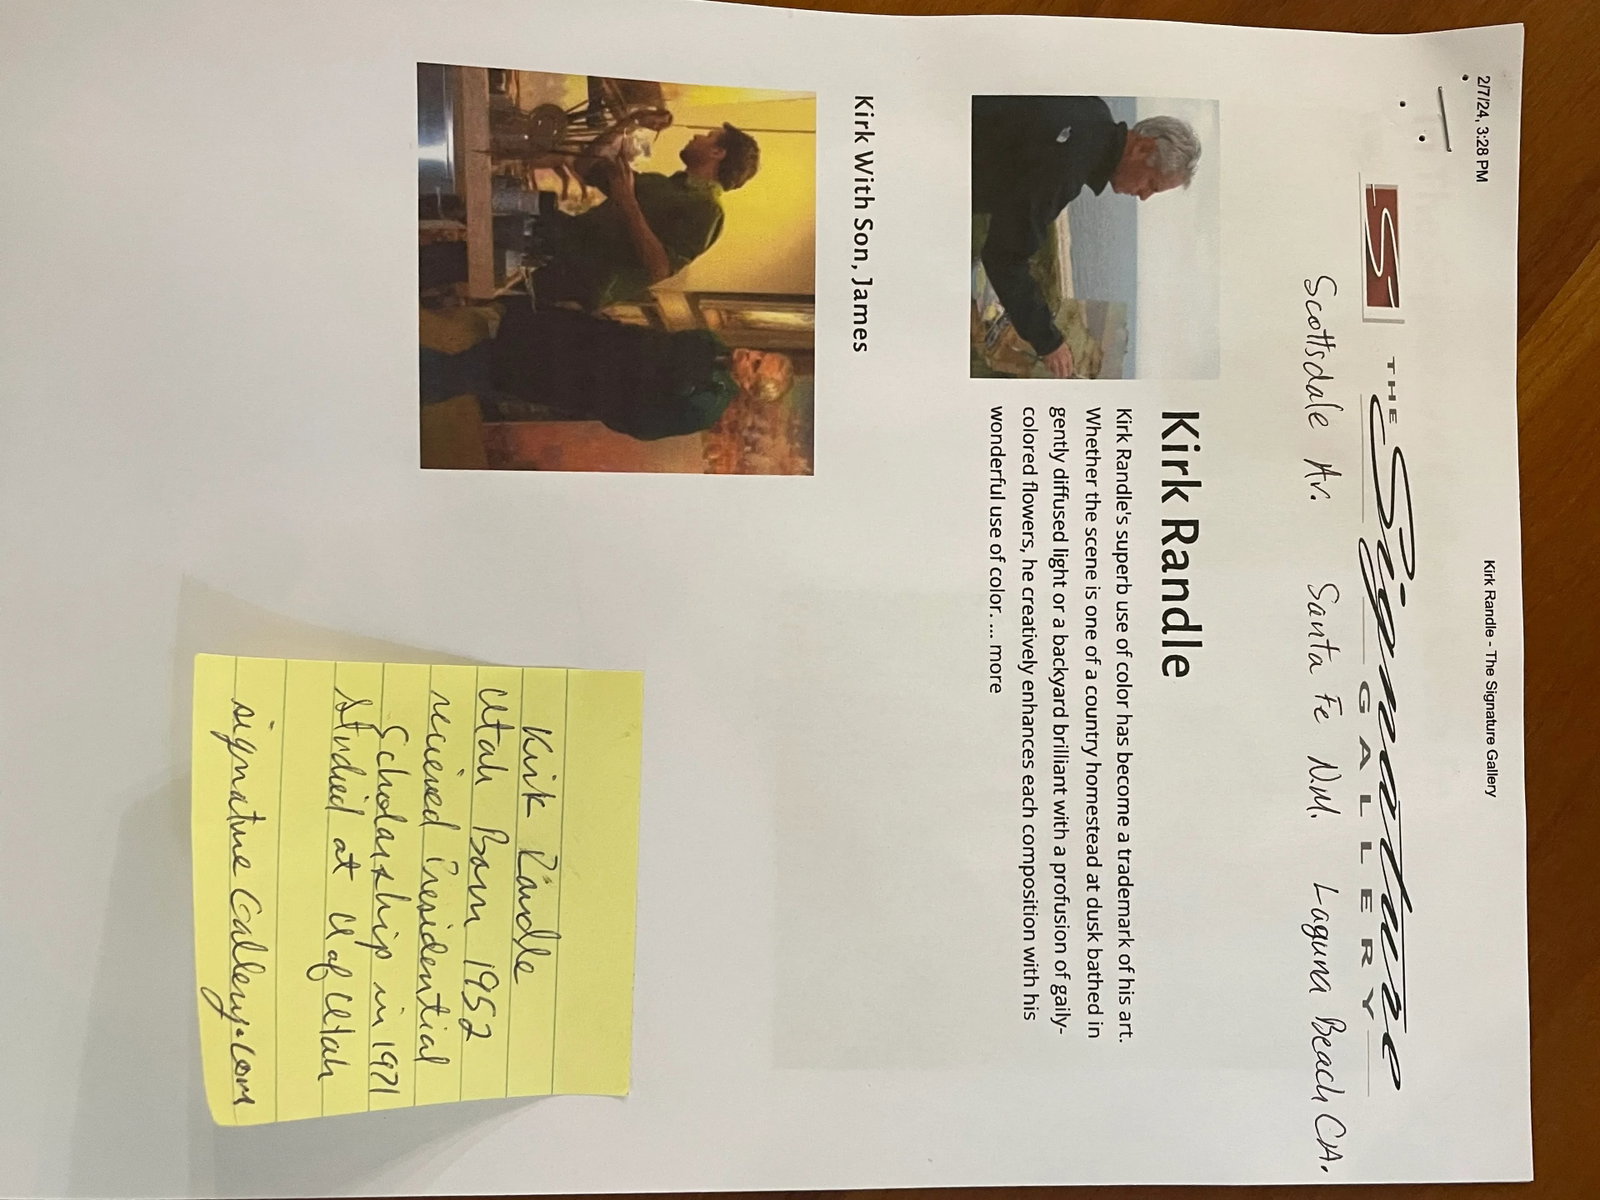 2/7/24, 3:28 PM
Kirk Randle - The Signature Gallery
S
THE Signature
GALLERY
Scottsdale Ar. Santa Fe N.M. Laguna Beach CA.
Kirk Randle
Kirk Randle's superb use of color has become a trademark of his art.
Whether the scene is one of a country homestead at dusk bathed in
gently diffused light or a backyard brilliant with a profusion of gaily-
colored flowers, he creatively enhances each composition with his
wonderful use of color. ... more
Kirk With Son, James
Kirk Randle
Utah Born 1952
recieved Presidential
Scholarship in 1971
Studied at U of Utah
signature Gallery.com